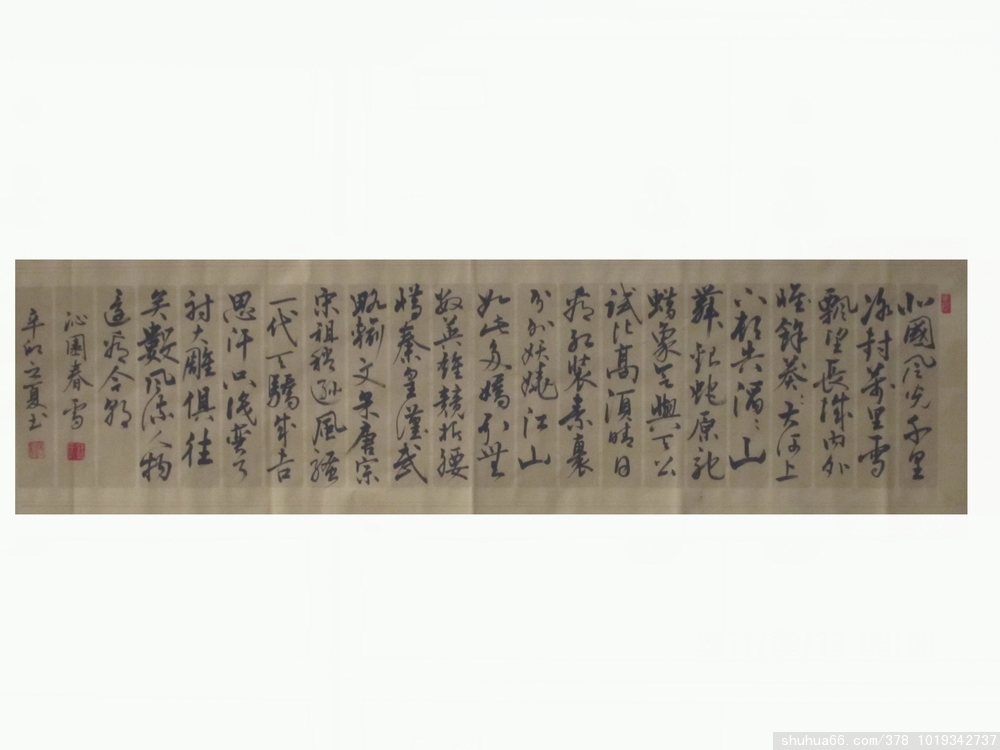 北國风光千里
冰封萬里雪
飄望長城內外
惟餘莽〻大河上
下頓失滔〻山
舞銀蛇原馳
蠟象欲與天公
試比高須晴日
看紅裝素裹
分外妖嬈江山
如此多嬌引無
數英雄競折腰
惜秦皇漢武
略輸文采唐宗
宋祖稍遜風騷
一代天驕成吉
思汗只識彎弓
射大雕俱往
矣數风流人物
還看今朝
沁園春雪
辛卯之夏书
shuhua66.com/378 1019342737